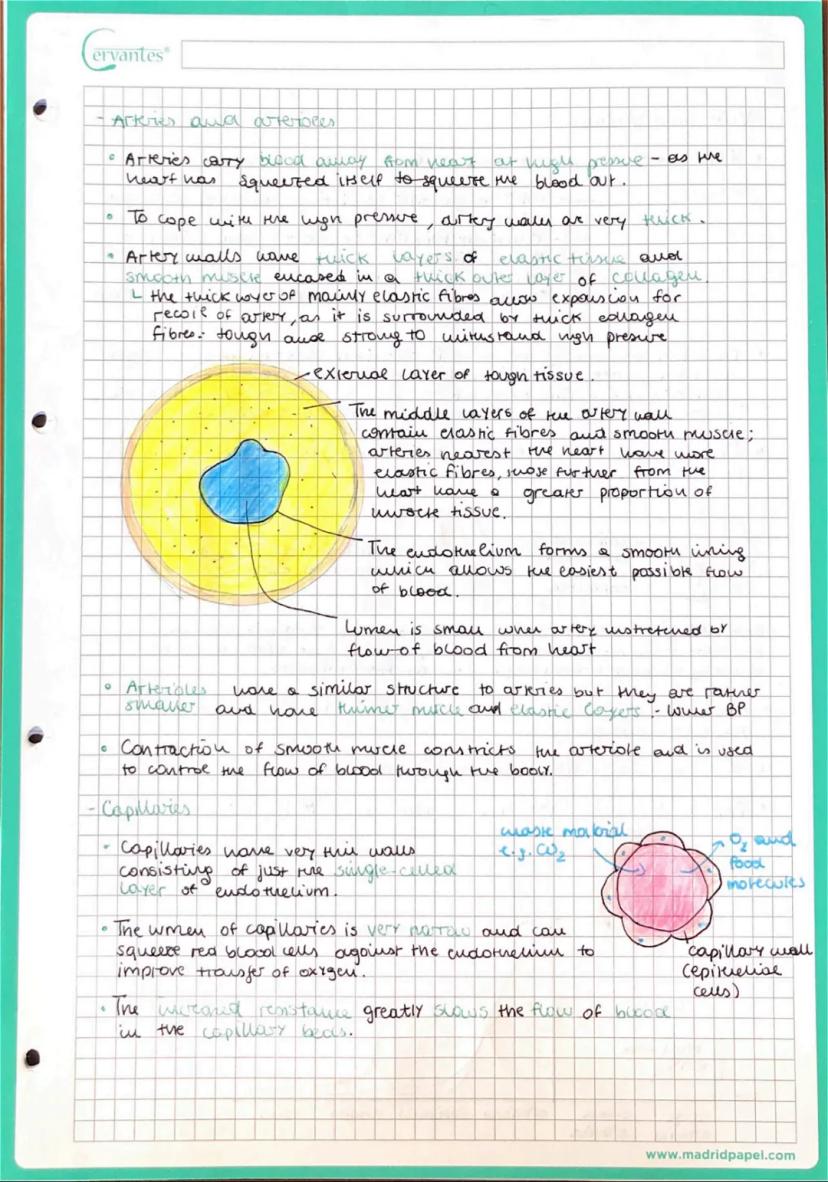 Cervantes®
- Arteries and arterioles
• Arteries carry blood away from heart at high pressure - as the
heart has squeezed itself to squeeze the blood out.
• To cope with the high pressure, artery walls are very thick.
• Artery walls have thick layers of elastic tissue and
smooth muscle encased in a thick outer layer of collagen.
└ the thick layer of mainly elastic fibres allow expansion for
recoil of artery, as it is surrounded by thick collagen
fibres: tough and strong to withstand high pressure
external layer of tough tissue.
The middle layers of the artery wall
contain elastic fibres and smooth muscle;
arteries nearest the heart have more
elastic fibres, those further from the
heart have a greater proportion of
muscle tissue.
The endothelium forms a smooth lining
which allows the easiest possible flow
of blood.
Lumen is small when artery unstretched by
flow of blood from heart
• Arterioles have a similar structure to arteries but they are rather
smaller and have thinner muscle and elastic layers :- lower BP
• Contraction of smooth muscle constricts the arteriole and is used
to control the flow of blood through the body.
- Capillaries
waste material
e.g. CO2
O2 and
food
molecules
• Capillaries have very thin walls
consisting of just the single-celled
layer of endothelium.
• The lumen of capillaries is very narrow and can
squeeze red blood cells against the endothelium to
improve transfer of oxygen.
capillary wall
(epithelial
cells)
• The increased resistance greatly slows the flow of blood
in the capillary beds.
www.madridpapel.com